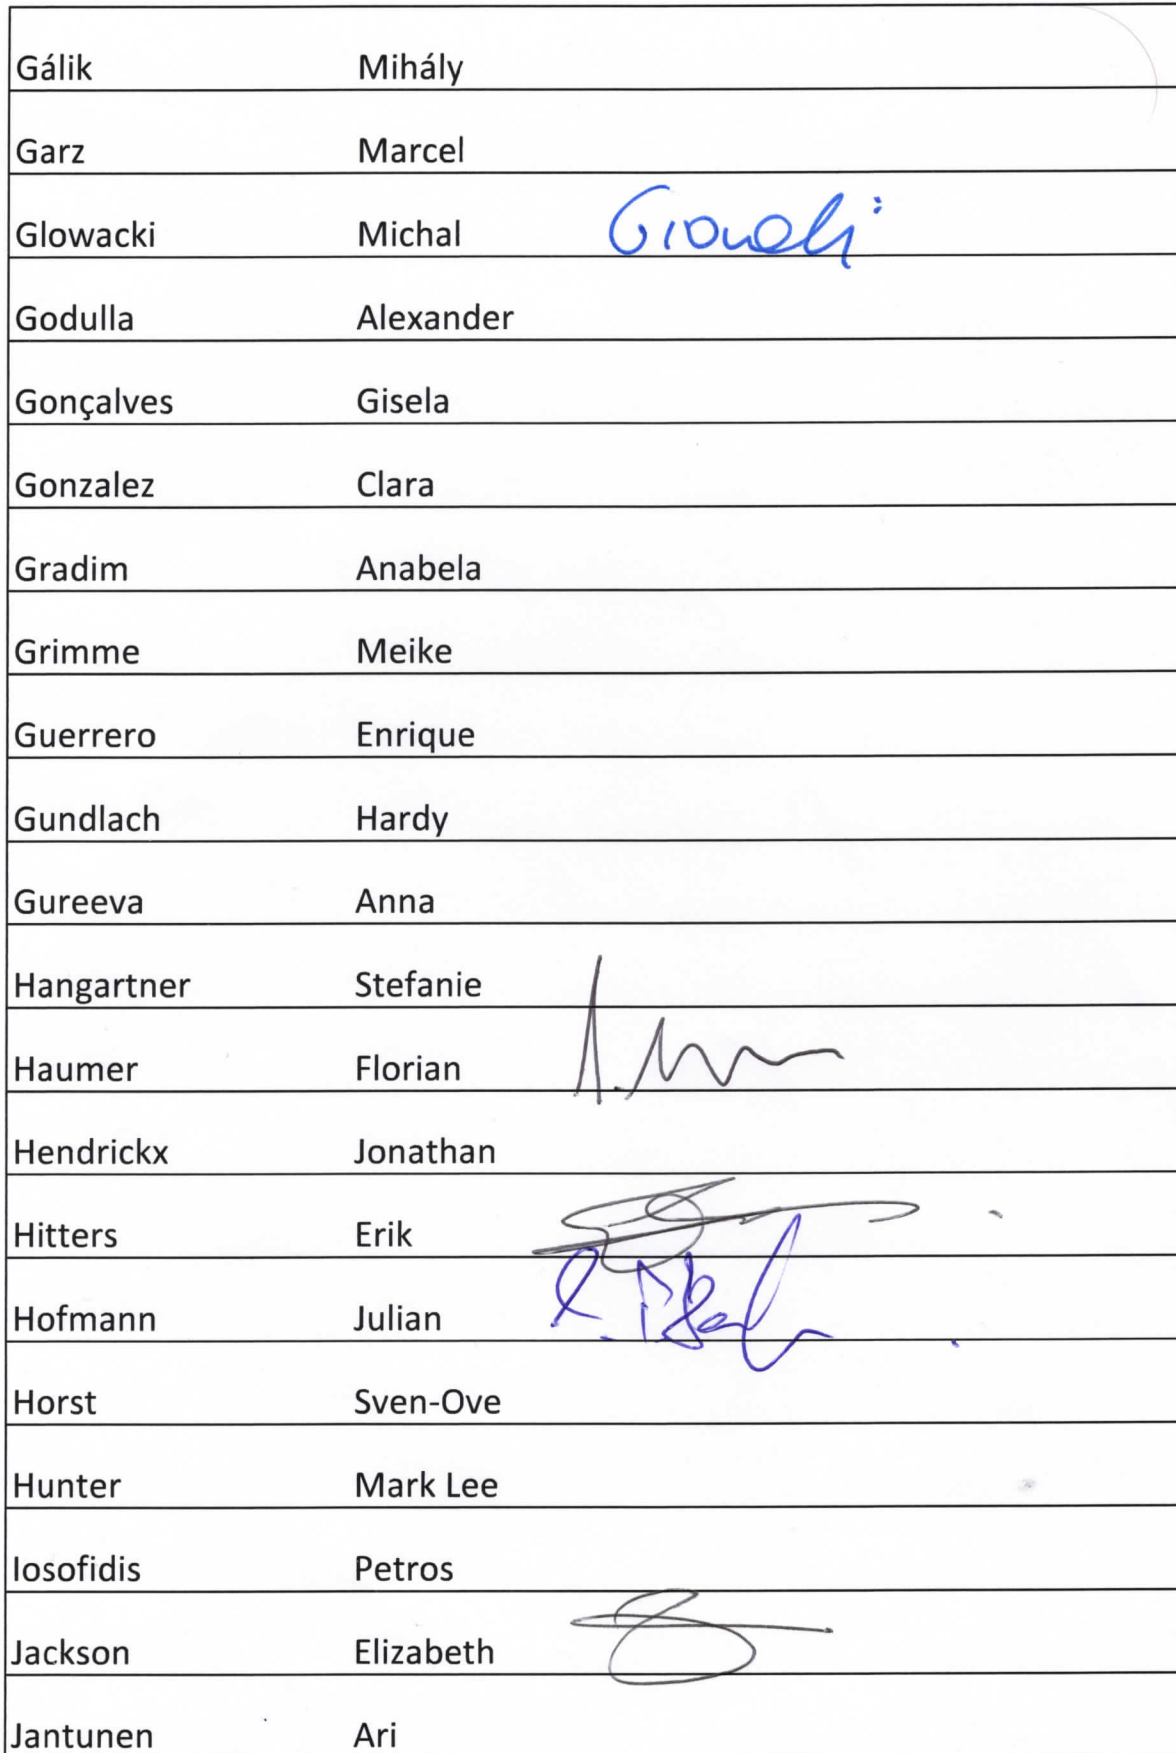 Gálik Mihály
Garz Marcel
Glowacki Michal
Godulla Alexander
Gonçalves Gisela
Gonzalez Clara
Gradim Anabela
Grimme Meike
Guerrero Enrique
Gundlach Hardy
Gureeva Anna
Hangartner Stefanie
Haumer Florian
Hendrickx Jonathan
Hitters Erik
Hofmann Julian
Horst Sven-Ove
Hunter Mark Lee
Iosofidis Petros
Jackson Elizabeth
Jantunen Ari